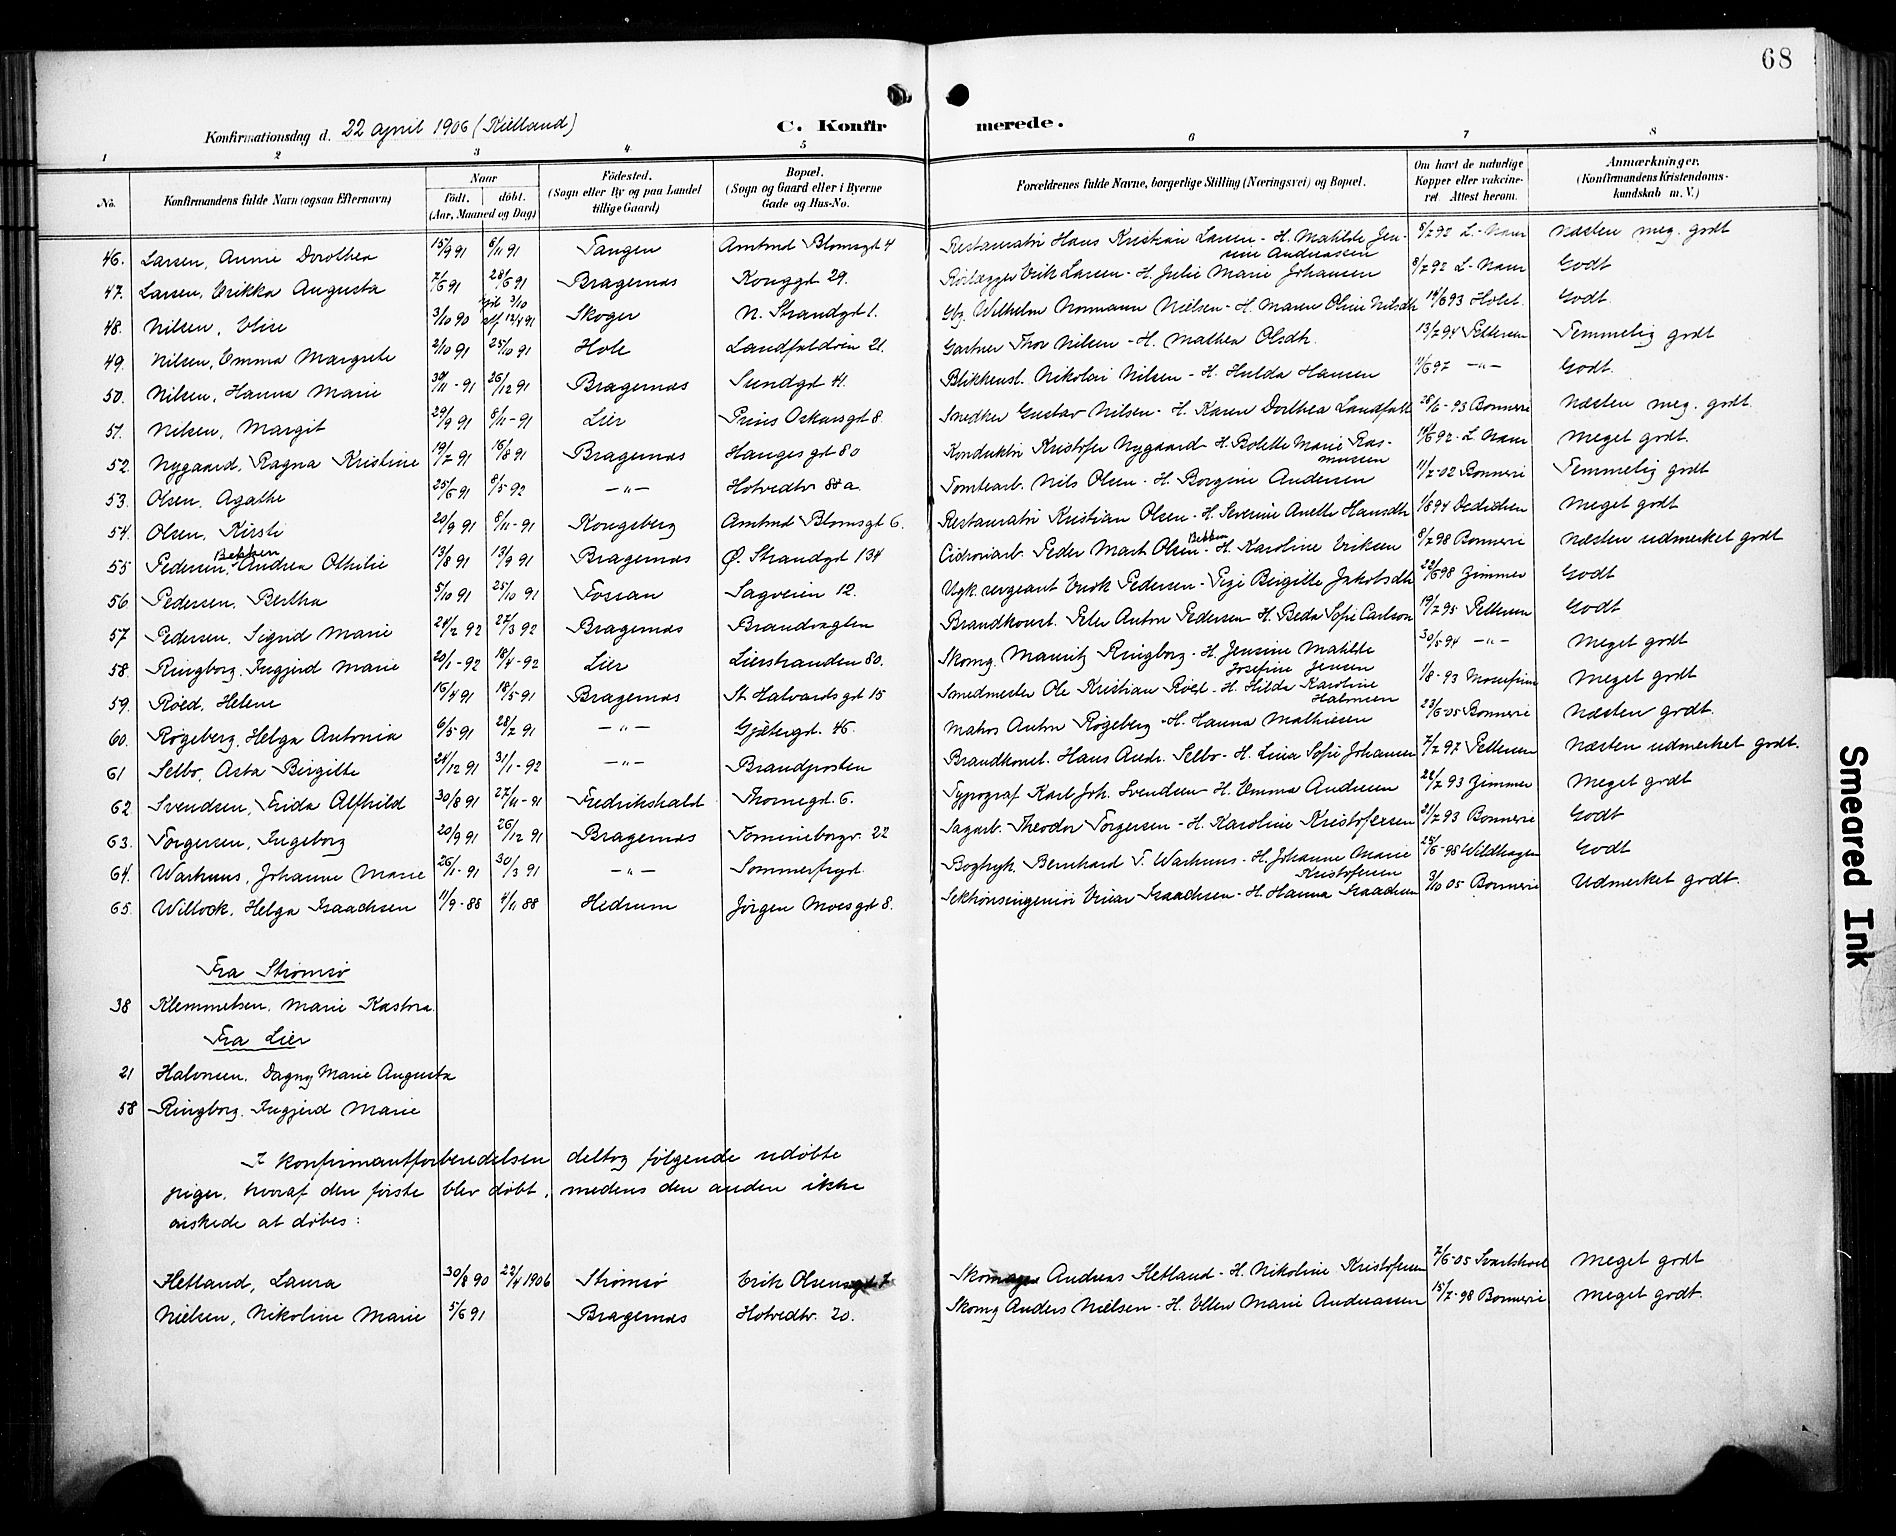 68
Konfirmationsdag d. 22 april 1906 (Kielland)
C. Konfirmerede.
1 2 3 4 5 6 7 8
No. Konfirmandens fulde Navn (ogsaa Efternavn) Naar født. døbt. (Aar, Maaned og Dag) Fødested. (Sogn eller By og paa Landet tillige Gaard) Bopæl. (Sogn og Gaard eller i Byerne Gade og Hus-No. Forældrenes fulde Navne, borgerlige Stilling (Næringsvei) og Bopæl. Om havt de naturlige Kopper eller vakcineret. Attest herom. Anmærkninger. (Konfirmandens Kristendomskundskab m. V.)
46. Larsen, Annie Dorothea 15/9 91 8/11 91 Tangen Amtmd Blomsgt 4 Restauratør Hans Kristian Larsen - H. Matilde Jensine Andreassen 8/7 92 L. Nam Næsten meg. godt
47. Larsen, Erikka Augusta 7/6 91 28/6 91 Bragernæs Konggt 29. Rørlægger Erik Larsen - H. Julie Marie Johansen 8/7 92 L. Nam Godt
48. Nilsen, Elise 3/10 90 Skoger N. Strandgt 1. Gbr. Wilhelm Normann Nielsen - H. Maren Oline Nilsdtr 14/6 93 Holst Godt.
49. Nilsen, Emma Margrete 2/10 91 25/10 91 Hole Landfaldvin 21. Gartner Thor Nilsen - H. Mathea Olsdtr. 13/7 94 Pettersen Temmelig godt
50. Nilsen, Hanna Marie 30/11 - 91 26/12 91 Bragernæs Sundgt 41. Blikkensl. Nikolai Nilsen - H. Hulda Hansen 11/6 97 -"- Godt.
51. Nilsen, Margit 29/9 91 8/11 - 91 Lier Prins Oskarsgt 8. Snedker Gustav Nilsen - H. Karen Dorthea Landfald 28/6 - 93 Bonnevie Næsten meg. godt
52. Nygaard, Ragna Kristine 19/7 91 16/8 91 Bragernæs Haugesgt 80 Konduktør Kristofer Nygaard - H. Bolette Marie Rasmussen 14/6 92 - L. Nam Meget godt.
53. Olsen, Agathe 25/6 91 8/5 92 -"- Hotvedtv 88 a. Tomtearb. Nils Olsen - H. Borgine Andersen 11/7 - 02 Bonnevie Temmelig godt
54. Olsen, Kirsti 20/9 91 8/11 - 91 Kongsberg Amtmd Blomsgt 6. Restauratør Kristian Olsen - H. Severine Anette Hansdtr 1/8 94 Dedichen Meget godt
55 Pedersen, Bekken Andrea Othilie 13/8 91 13/9 91 Bragernæs Ø. Strandgt 134 Cichoriarb. Peder Mart. Olsen Bekken - H. Karoline Eriksen 8/7 98 Bonnevie Næsten udmerket godt
56 Pedersen, Bertha 5/10 91 25/10 91 Fossan Sagveien 12. Vgk. sergeant Enok Pedersen - Pige Birgitte Jakobsdtr 22/6 98 Zimmer Godt
57 Pedersen, Sigrid Marie 24/2 92 27/3 92 Bragernæs Brandvagten Brandkonst. Peter Anton Pedersen - H. Beda Sofie Carlson 19/7 95 Pettersen Godt
58. Ringborg, Ingjerd Marie 20/1 - 92 18/4 - 92 Lier Lierstranden 80. Skomg. Mauritz Ringborg - H. Jensine Matilde Josefine Jensen 30/5 94 -"- Meget godt
59. Röed, Helene 16/4 91 18/5 91 Bragernæs St Halvardsgt 15 Smedmester Ole Kristian Röed - H. Hilda Karoline Halvorsen 1/8 - 93 Meget godt
60. Røgeberg, Helga Antonia 6/5 91 28/7 91 -"- Gjetergt. 46. Matros Anton Røgeberg - H. Hanna Mathiesen 23/6 - 05 Bonnevie Næsten godt.
61 Selbo, Asta Birgitte 24/12 91 31/1 - 92 -"- Brandposten Brandkonst. Hans Andr. Selbo - H. Lina Sofie Johansen 7/7 97 Pettersen Næsten udmerket godt.
62 Svendsen, Frida Alfhild 30/8 91 27/11 - 91 Fredrikshald Thornegt. 6. Typograf Karl Joh. Svendsen - H. Emma Andresen 22/7 93 Zimmer Meget godt
63. Torgersen, Ingeborg 20/9 91 26/12 91 Bragernæs Tomineborgv. 22 Sagarb. Theodor Torgersen - H. Karoline Kristofersen 21/7 93 Bonnevie Godt
64. Warhuus, Johanne Marie 26/1 - 91 30/3 91 -"- Sommerfryd. Bogtryk. Bernhard T. Warhuus - H. Johanne Marie Kristofersen 25/6 - 98 Wildhagen Godt
65. Willock, Helga Isaachsen 11/9 - 88 4/11 88 Hedrum Jørgen Moesgt 8. Sektionsingeniør Einar Isaachsen - H. Hanna Isaachsen 3/10 05 Bonnevie Udmerket godt.
Fra Strømsø
38 Klemmetsen, Marie Kastora
Fra Lier
21 Halvorsen, Dagny Marie Augusta
58 Ringborg, Ingjerd Marie
I konfirmantforberedelsen deltog følgende udøbte
piger, hvoraf den første blev døbt, medens den anden ikke
ønskede at døbes:
Hetland, Laura 30/8 90 22/4 1906 Strømsø Erik Olsensgt 7 Skomager Andreas Hetland - H. Nikoline Kristofersen 7/6 - 05 Meget godt
Nielsen, Nikoline Marie 5/6 91 Bragernæs Hotvedtv. 20. Skomg Anders Nielsen - H. Ellen Marie Andreassen 15/7 - 98 Bonnevie Meget godt.
Smeared Ink